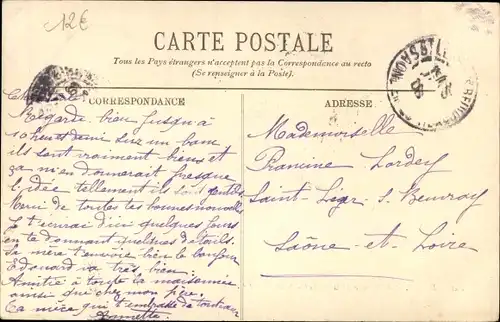 12€
CARTE POSTALE
Tous les Pays étrangers n'acceptent pas la Correspondance au recto
(Se renseigner à la Poste).
CORRESPONDANCE
ADRESSE
Regarde bien jusqu'à
10 heures demi sur un banc
ils sont vraiment biens et
ça m'en donnerait presque
l'idée tellement ils sont gentils
Merci de toutes tes bonnes nouvelles
Je t'écrirai d'ici quelques jours
en te donnant quelques détails.
Ta mère t'envoie bien le bonjour
Edouard va très bien.
Amitié à toute la maisonnée
ainsi que chez mon père.
Ta nièce qui t'embrasse de tout cœur
Mademoiselle
Francine Lordey
Saint-Léger s. Beuvray
Saône-et-Loire